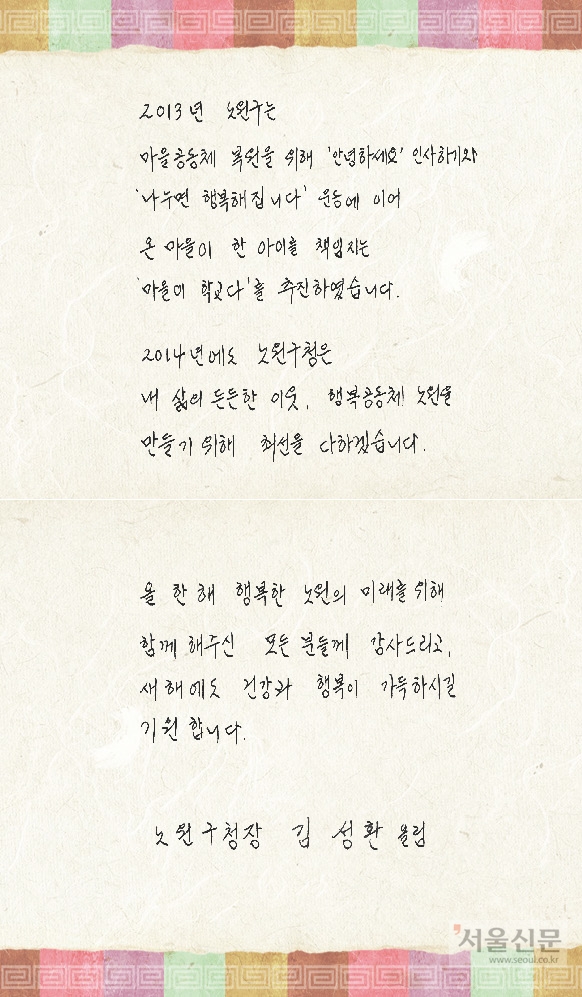 2013년 노원구는
마을공동체 복원을 위해 '안녕하세요' 인사하기와
'나누면 행복해집니다' 운동에 이어
온 마을이 한 아이를 책임지는
'마을이 학교다'를 추진하였습니다.
2014년에도 노원구청은
내 삶의 든든한 이웃, 행복공동체 노원을
만들기 위해 최선을 다하겠습니다.
올 한해 행복한 노원의 미래를 위해
함께 해주신 모든 분들께 감사드리고,
새해에도 건강과 행복이 가득하시길
기원합니다.
노원구청장 김성환 올림
서울신문
www.seoul.co.kr